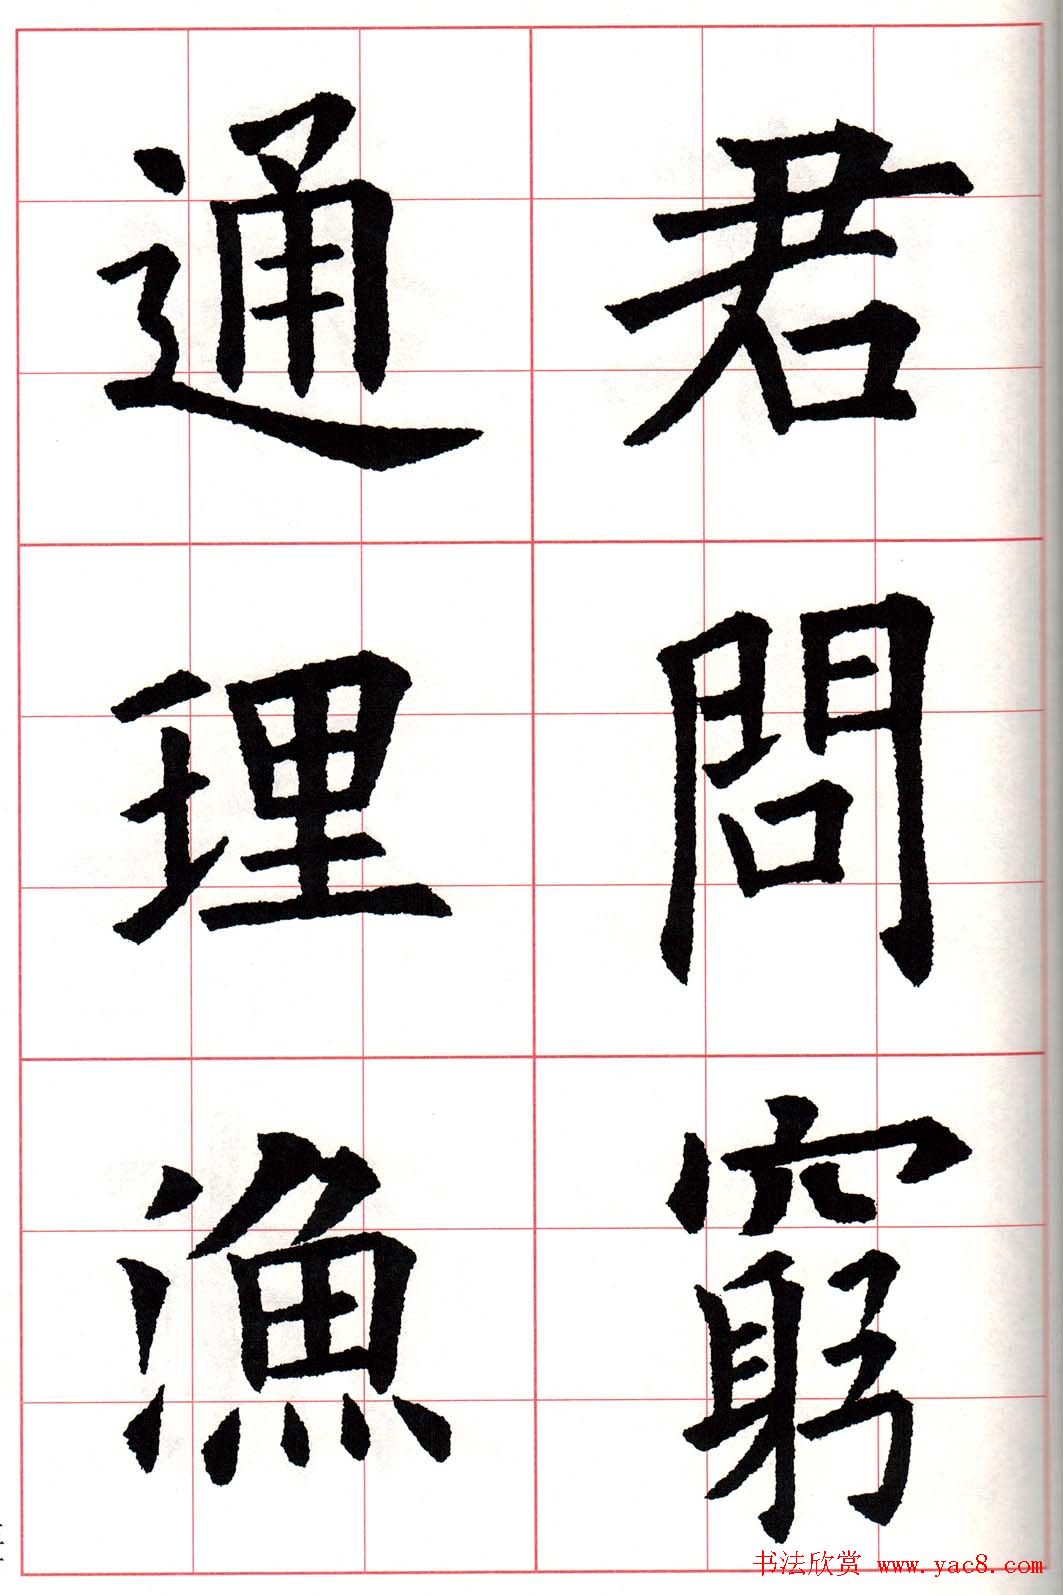 君問窮
通理漁
书法欣赏 www.yac8.com